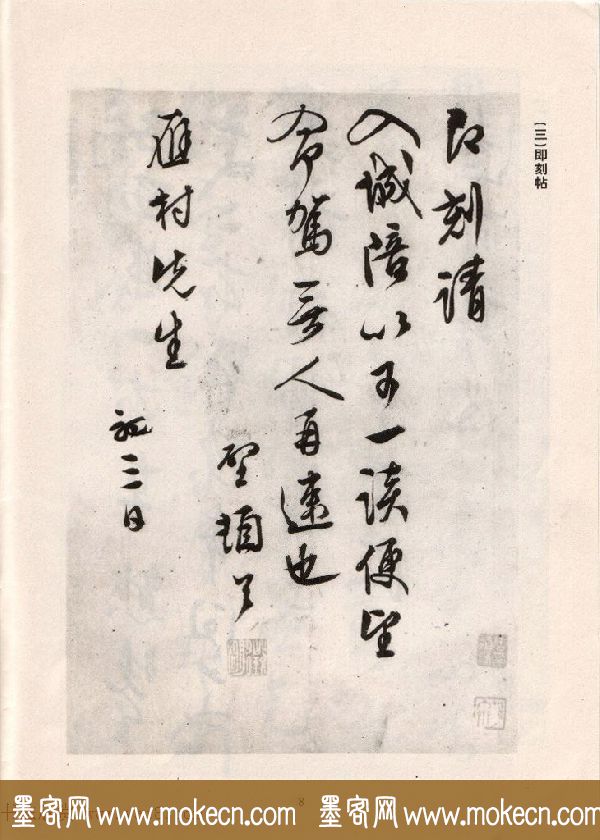 〔三〕即刻帖
即刻請
入城陪以一談便望
命駕無人再速也
雁村先生
三日
8
墨客网www.mokecn.com 墨客网www.mokecn.com